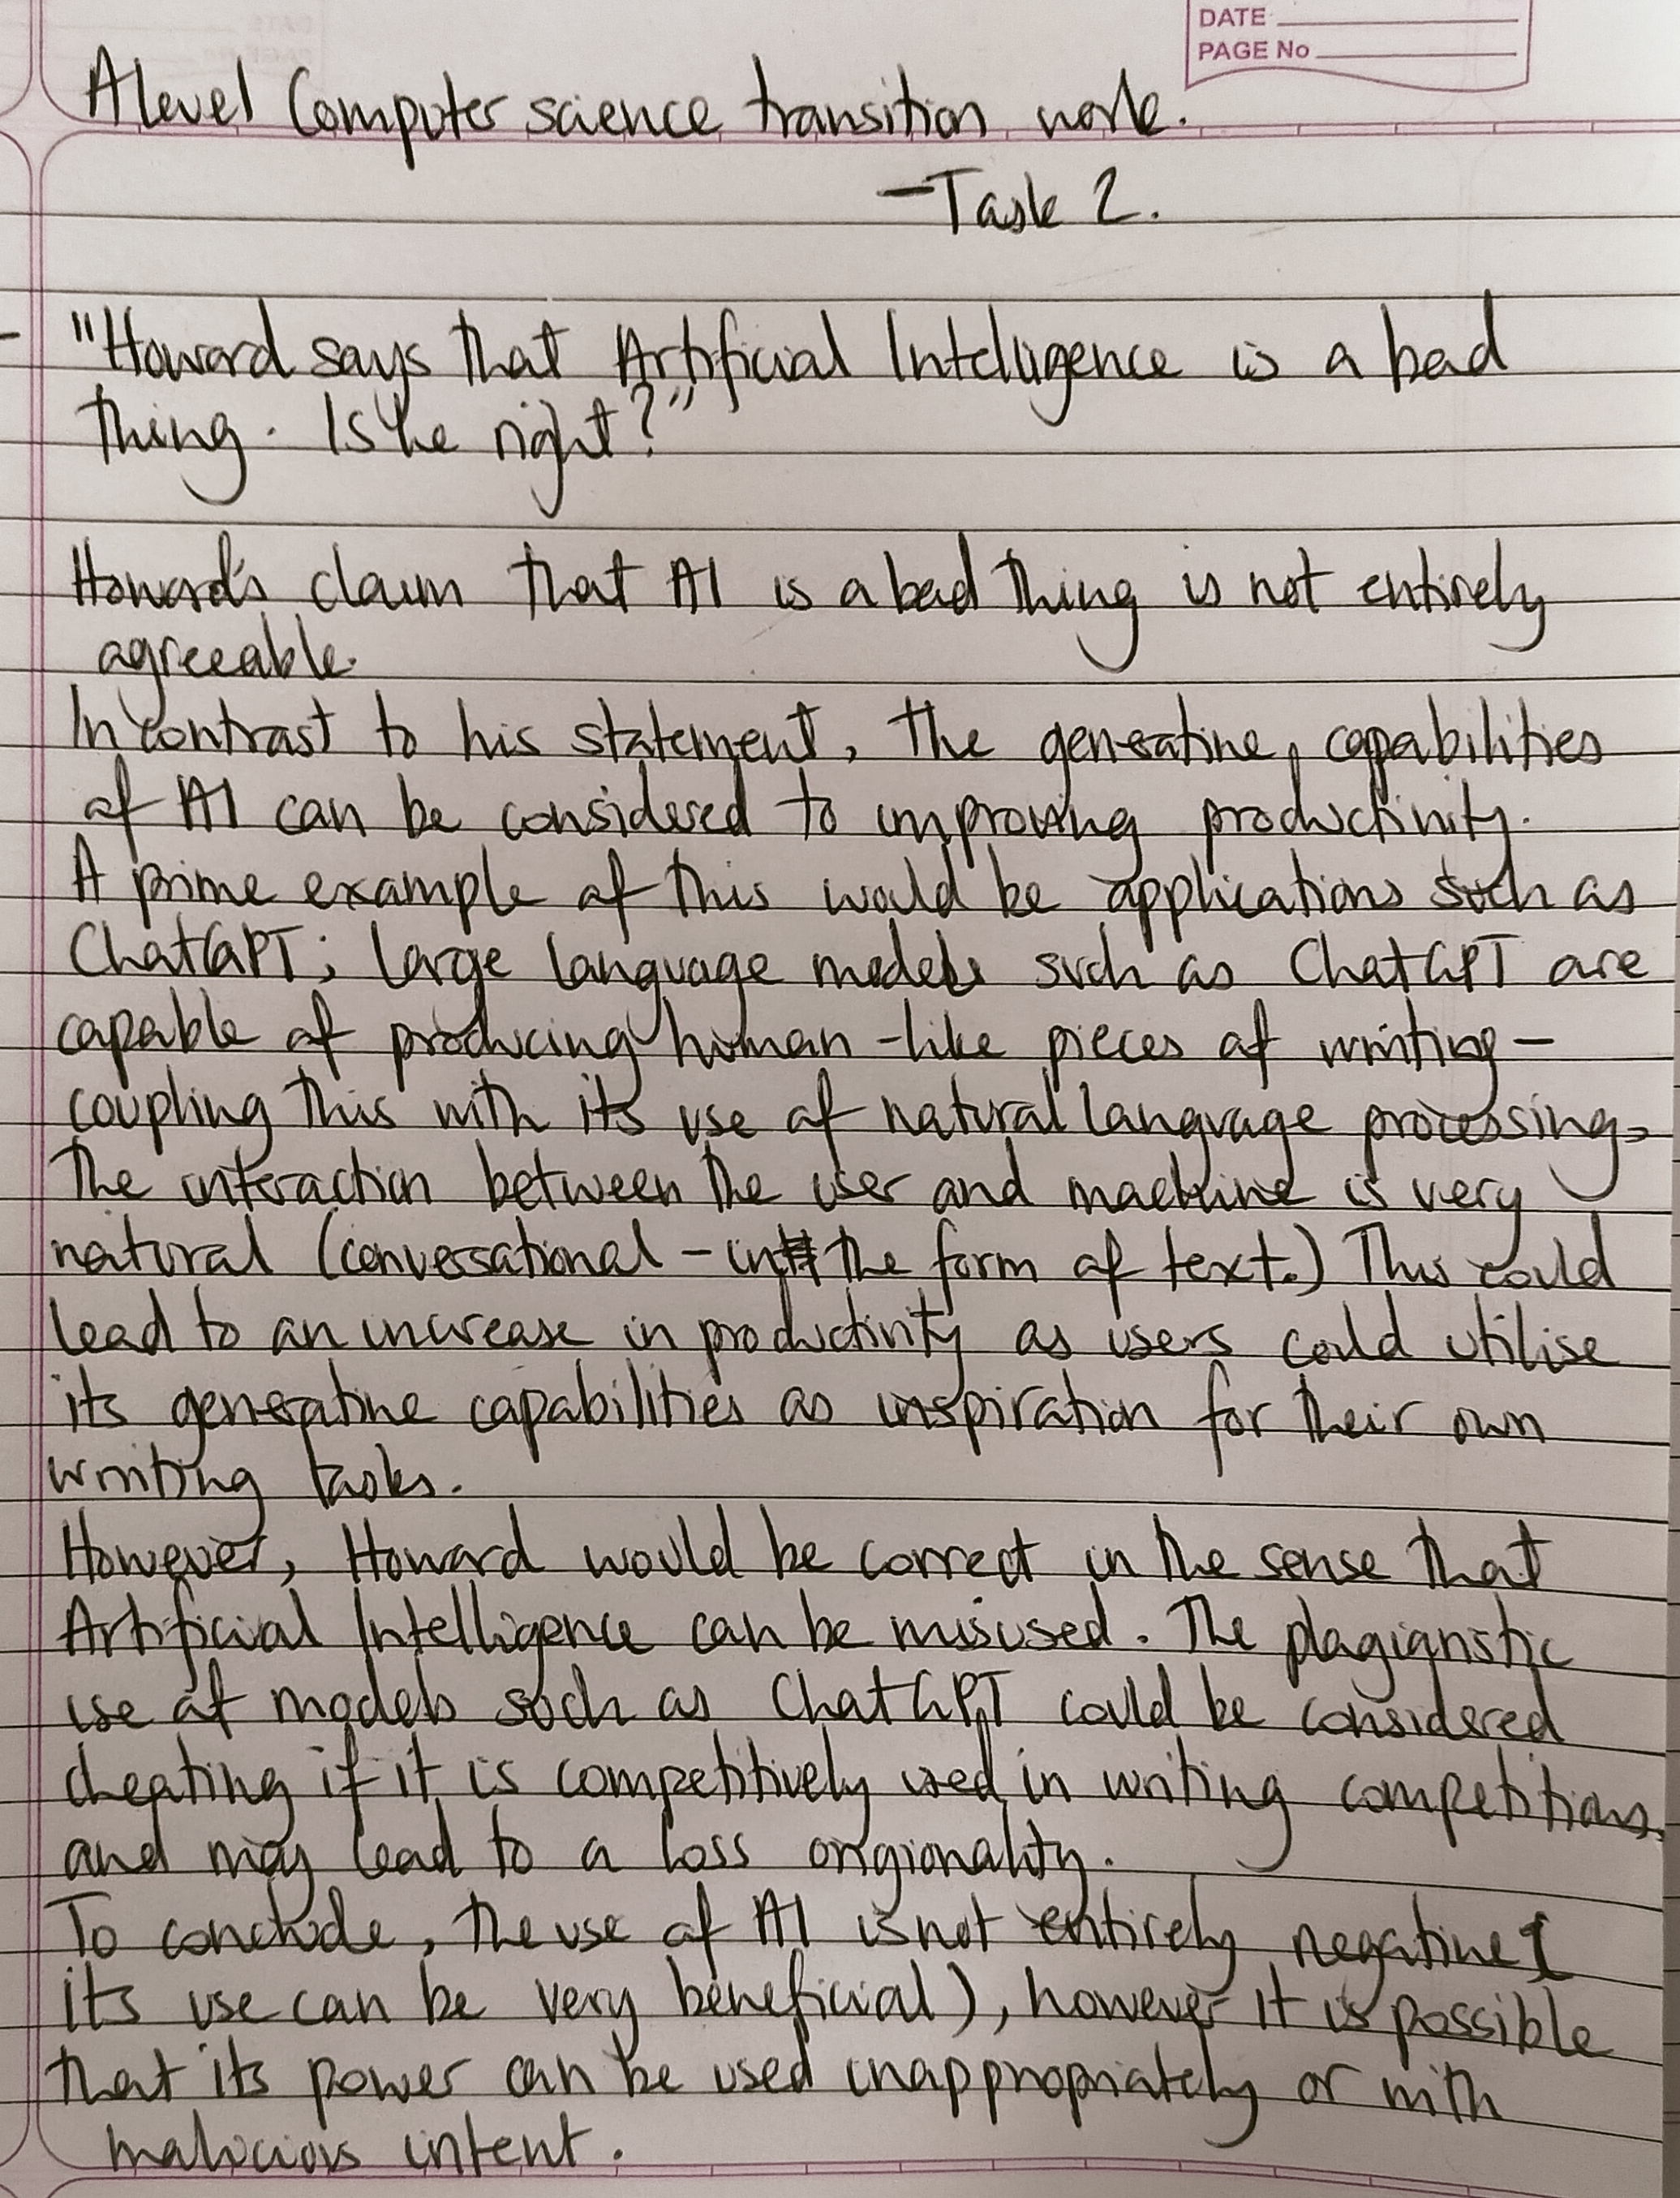 DATE
PAGE No
A level Computer science transition work.
- Task 2.
- "Howard says that Artificial Intelligence is a bad
thing. Is he right?"
Howard's claim that AI is a bad thing is not entirely
agreeable.
In contrast to his statement, the generative capabilities
of AI can be considered to improving productivity.
A prime example of this would be applications such as
ChatGPT; large language models such as ChatGPT are
capable of producing human-like pieces of writing -
coupling this with its use of natural language processing,
the interaction between the user and machine is very
natural (conversational - in the form of text.) This could
lead to an increase in productivity as users could utilise
its generative capabilities as inspiration for their own
writing tasks.
However, Howard would be correct in the sense that
Artificial Intelligence can be misused. The plagiaristic
use of models such as ChatGPT could be considered
cheating if it is competitively used in writing competitions.
and may lead to a loss origionality.
To conclude, the use of AI is not entirely negative (
its use can be very beneficial), however it is possible
that its power can be used inappropriately or with
malicious intent.